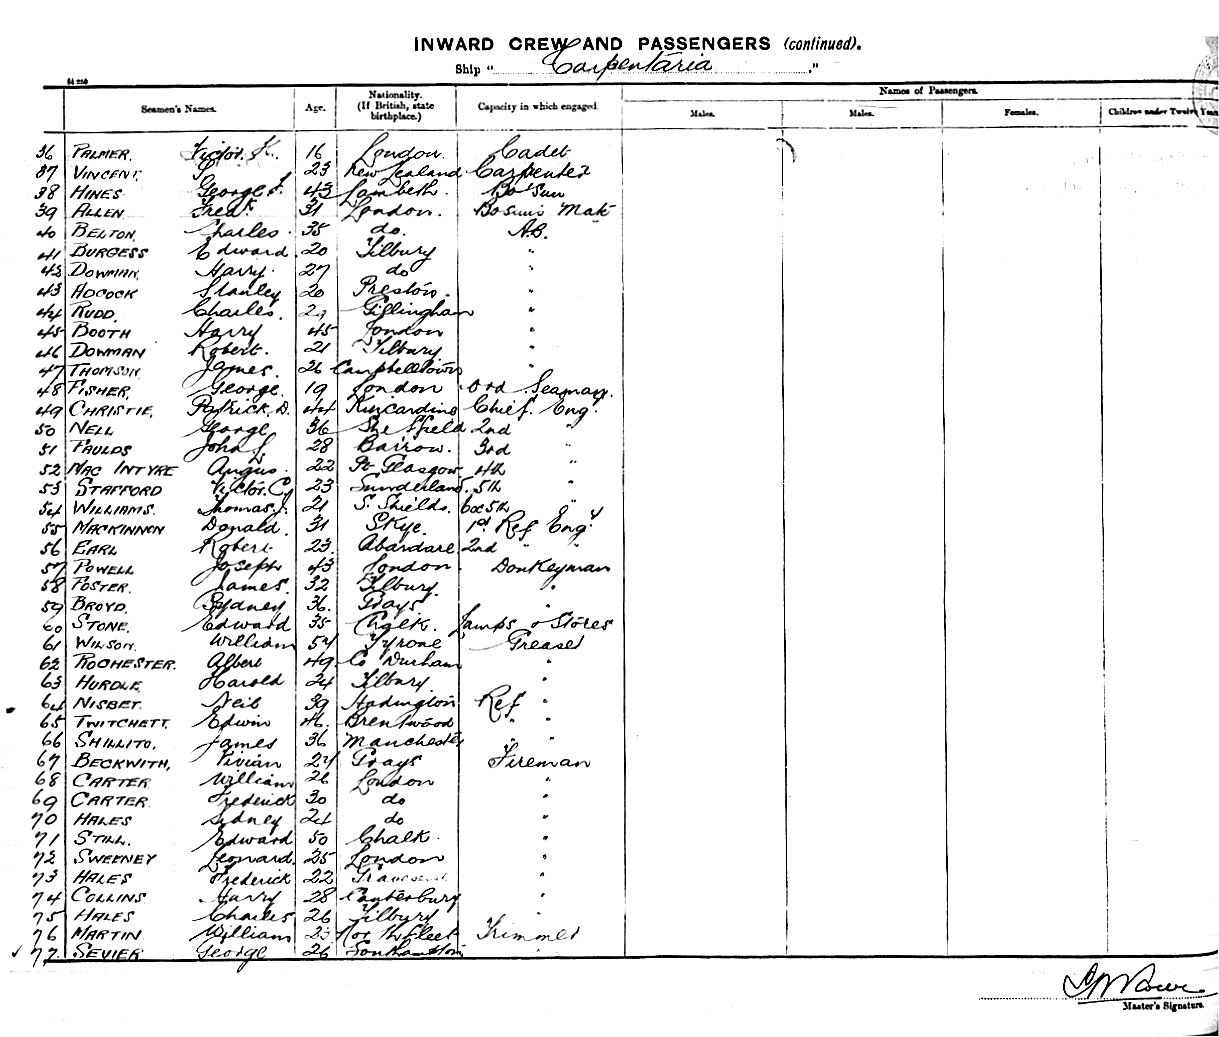 INWARD CREW AND PASSENGERS (continued).
Ship "Carpentaria."
Seamen's Names. Age. Nationality. (If British, state birthplace.) Capacity in which engaged. Names of Passengers.
Males. Males. Females. Children under Twelve Years
36 PALMER. Victor. 16 London. Cadet
37 VINCENT, 23 New Zealand Carpenter
38 HINES George 43 Lambeth. Bo'sun
39 ALLEN Fredk. 31 London. Bosuns Mate
40 BELTON, Charles. 35 do. A.B.
41 BURGESS Edward. 20 Tilbury "
42 DOWMAN, Harry. 27 do "
43 ADCOCK Stanley 20 Preston. "
44 RUDD, Charles. 29 Gillingham "
45 BOOTH Harry 45 London "
46 DOWMAN Robert. 21 Tilbury. "
47 THOMSON, James. 26 Campbelltown "
48 FISHER, George. 19 London Ord Seaman.
49 CHRISTIE, Patrick. D. 44 Kincardine Chief. Eng.
50 NELL George 36 Sheffield 2nd "
51 FAULDS John 28 Barrow. 3rd "
52 MAC INTYRE Angus. 22 Pt Glasgow 4th "
53 STAFFORD Victor. 23 Sunderland. 5th "
54 WILLIAMS. Thomas. J. 21 S. Shields. 5th "
55 MACKINNON Donald. 31 Skye. 1st Ref Eng.
56 EARL Robert 23. Abardare 2nd " "
57 POWELL Joseph 43 London. Donkeyman
58 FOSTER. James. 32 Tilbury. "
59 BROYD. Sydney 36. Grays "
60 STONE. Edward 35 Chalk. Lamps & Stores
61 WILSON. William 54 Tyrone Greaser
62 ROCHESTER. Albert 49. Co Durham "
63 HURDLE, Harold 24 Tilbury. "
64 NISBET. Neil 39 Hadington Ref "
65 TWITCHETT. Edwin 46. Brentwood " "
66 SHILLITO, James 36 Manchester " "
67 BECKWITH, Vivian 27 Grays Fireman
68 CARTER William 26 London "
69 CARTER. Frederick 30 do "
70 HALES Sidney 24 do "
71 STILL. Edward 50 Chalk. "
72 SWEENEY Leonard. 25 London "
73 HALES Frederick 22 "
74 COLLINS Harry 28 Canterbury "
75 HALES Charles 26 Tilbury "
76 MARTIN William 23 Northfleet Trimmer
77. SEVIER George 26 Southampton "
Master's Signature.